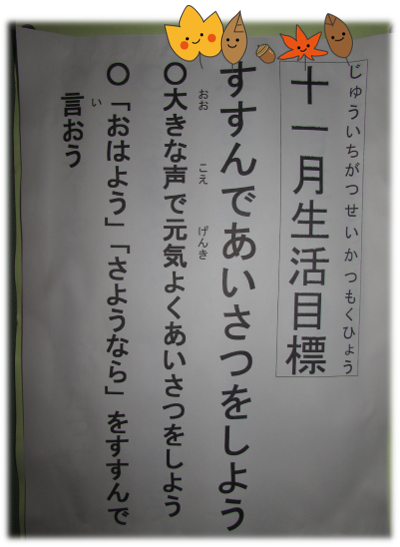 じゅういちがつせいかつもくひょう
十一月生活目標
すすんであいさつをしよう
おお こえ げんき
〇大きな声で元気よくあいさつをしよう
い
〇「おはよう」「さようなら」をすすんで
言おう